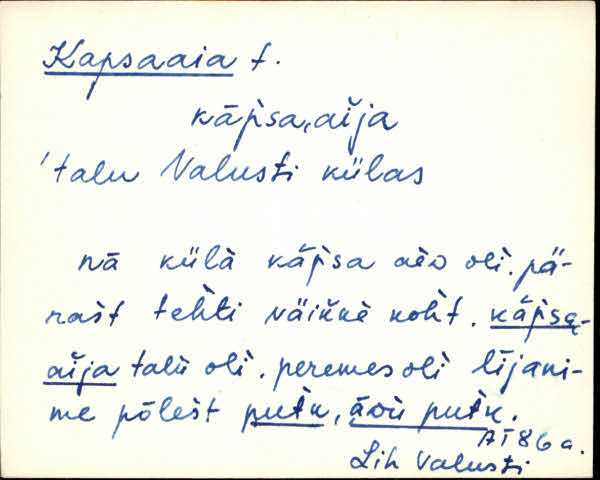 Kapsaaia t.
kāp̀sa,aǐja
'talu Valusti külas
nā külà kāp̀sa aèo olì. pä-
rašt tehti väikkè koht. kāp̀sa-
aǐja talù olì. peremes olì lījani-
me pōlešt putk, āvù putk.
AT 86 a.
Lih Valusti